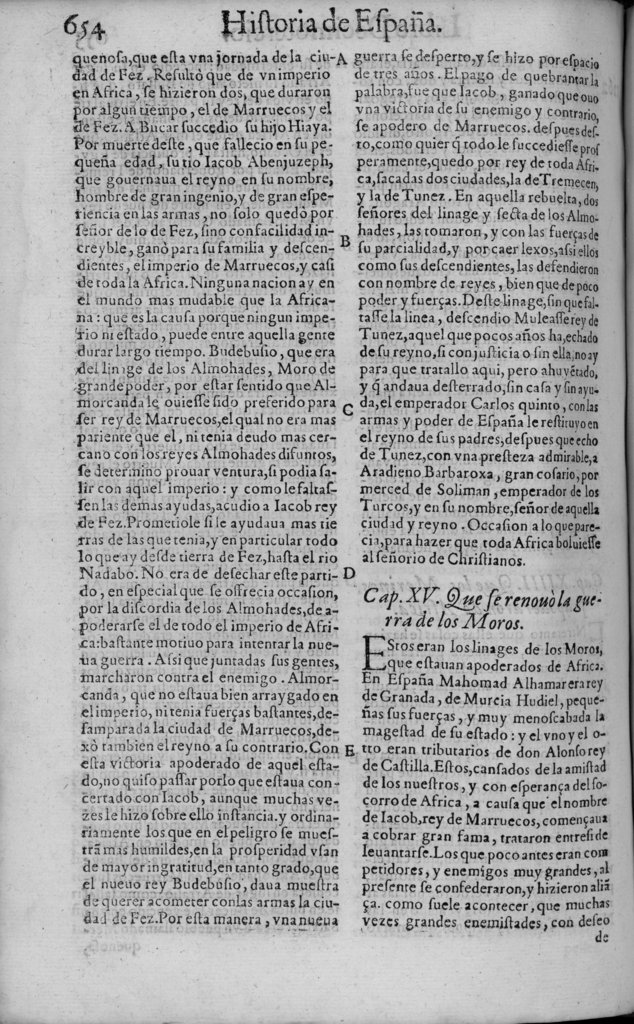 654 Historia de España.
quenosa,que esta vna jornada de la ciu-
dad de Fez. Resultò que de vn imperio
en Africa, se hizieron dos, que duraron
por algun tiempo, el de Marruecos y el
de Fez. A Bucar succedio su hijo Hiaya.
Por muerte deste, que fallecio en su pe-
queña edad, su tio Iacob Abenjuzeph,
que gouernaua el reyno en su nombre,
hombre de gran ingenio, y de gran espe-
riencia en las armas, no solo quedò por
señor de lo de Fez, sino con facilidad in-
creyble, ganò para su familia y descen-
dientes, el imperio de Marruecos, y casi
de toda la Africa. Ninguna nacion ay en
el mundo mas mudable que la Africa-
na: que es la causa porque ningun impe-
rio ni estado, puede entre aquella gente
durar largo tiempo. Budebusio, que era
del linage de los Almohades, Moro de
grande poder, por estar sentido que Al-
morcanda le ouiesse sido preferido para
ser rey de Marruecos, el qual no era mas
pariente que el, ni tenia deudo mas cer-
cano con los reyes Almohades difuntos,
se determinò prouar ventura, si podia sa-
lir con aquel imperio: y como le faltas-
sen las demas ayudas, acudio a Iacob rey
de Fez. Prometiole si le ayudaua mas tie
rras de las que tenia, y en particular todo
lo que ay desde tierra de Fez, hasta el rio
Nadabo. No era de desechar este parti-
do, en especial que se offrecia occasion,
por la discordia de los Almohades, de a-
poderarse el de todo el imperio de Afri-
ca: bastante motiuo para intentar la nue-
ua guerra. Assi que juntadas sus gentes,
marcharon contra el enemigo. Almor-
canda, que no estaua bien arraygado en
el imperio, ni tenia fuerças bastantes, de-
samparada la ciudad de Marruecos, de-
xò tambien el reyno a su contrario. Con
esta victoria apoderado de aquel esta-
do, no quiso passar por lo que estaua con-
certado con Iacob, aunque muchas ve-
zes le hizo sobre ello instancia. y ordina-
riamente los que en el peligro se mues-
trã mas humildes, en la prosperidad vsan
de mayor ingratitud, en tanto grado, que
el nueuo rey Budebusio, daua muestra
de querer acometer con las armas la ciu-
dad de Fez. Por esta manera, vna nueua
A
B
C
D
E
guerra se desperto, y se hizo por espacio
de tres años. El pago de quebrantar la
palabra, fue que Iacob, ganado que ouo
vna victoria de su enemigo y contrario,
se apodero de Marruecos. despues des-
to, como quier q̃ todo le succediesse pros
peramente, quedo por rey de toda Afri-
ca, sacadas dos ciudades, la de Tremecen,
y la de Tunez. En aquella rebuelta, dos
señores del linage y secta de los Almo-
hades, las tomaron, y con las fuerças de
su parcialidad, y por caer lexos, assi ellos
como sus descendientes, las defendieron
con nombre de reyes, bien que de poco
poder y fuerças. Deste linage, sin que fal-
tasse la linea, descendio Muleasse rey de
Tunez, aquel que pocos años ha, echado
de su reyno, si con justicia o sin ella, no ay
para que tratallo aqui, pero ahuyẽtado,
y q̃ andaua desterrado, sin casa y sin ayu-
da, el emperador Carlos quinto, con las
armas y poder de España le restituyo en
el reyno de sus padres, despues que echo
de Tunez, con vna presteza admirable, a
Aradieno Barbaroxa, gran cosario, por
merced de Soliman, emperador de los
Turcos, y en su nombre, señor de aquella
ciudad y reyno. Occasion a lo que pare-
cia, para hazer que toda Africa boluiesse
al señorio de Christianos.
Cap. XV. Que se renouò la gue-
rra de los Moros.
Estos eran los linages de los Moros,
que estauan apoderados de Africa.
En España Mahomad Alhamar era rey
de Granada, de Murcia Hudiel, peque-
ñas sus fuerças, y muy menoscabada la
magestad de su estado: y el vno y el o-
tro eran tributarios de don Alonso rey
de Castilla. Estos, cansados de la amistad
de los nuestros, y con esperança del so-
corro de Africa, a causa que el nombre
de Iacob, rey de Marruecos, començaua
a cobrar gran fama, trataron entre si de
leuantarse. Los que poco antes eran com
petidores, y enemigos muy grandes, al
presente se confederaron, y hizieron aliã
ça. como suele acontecer, que muchas
vezes grandes enemistades, con deseo
de